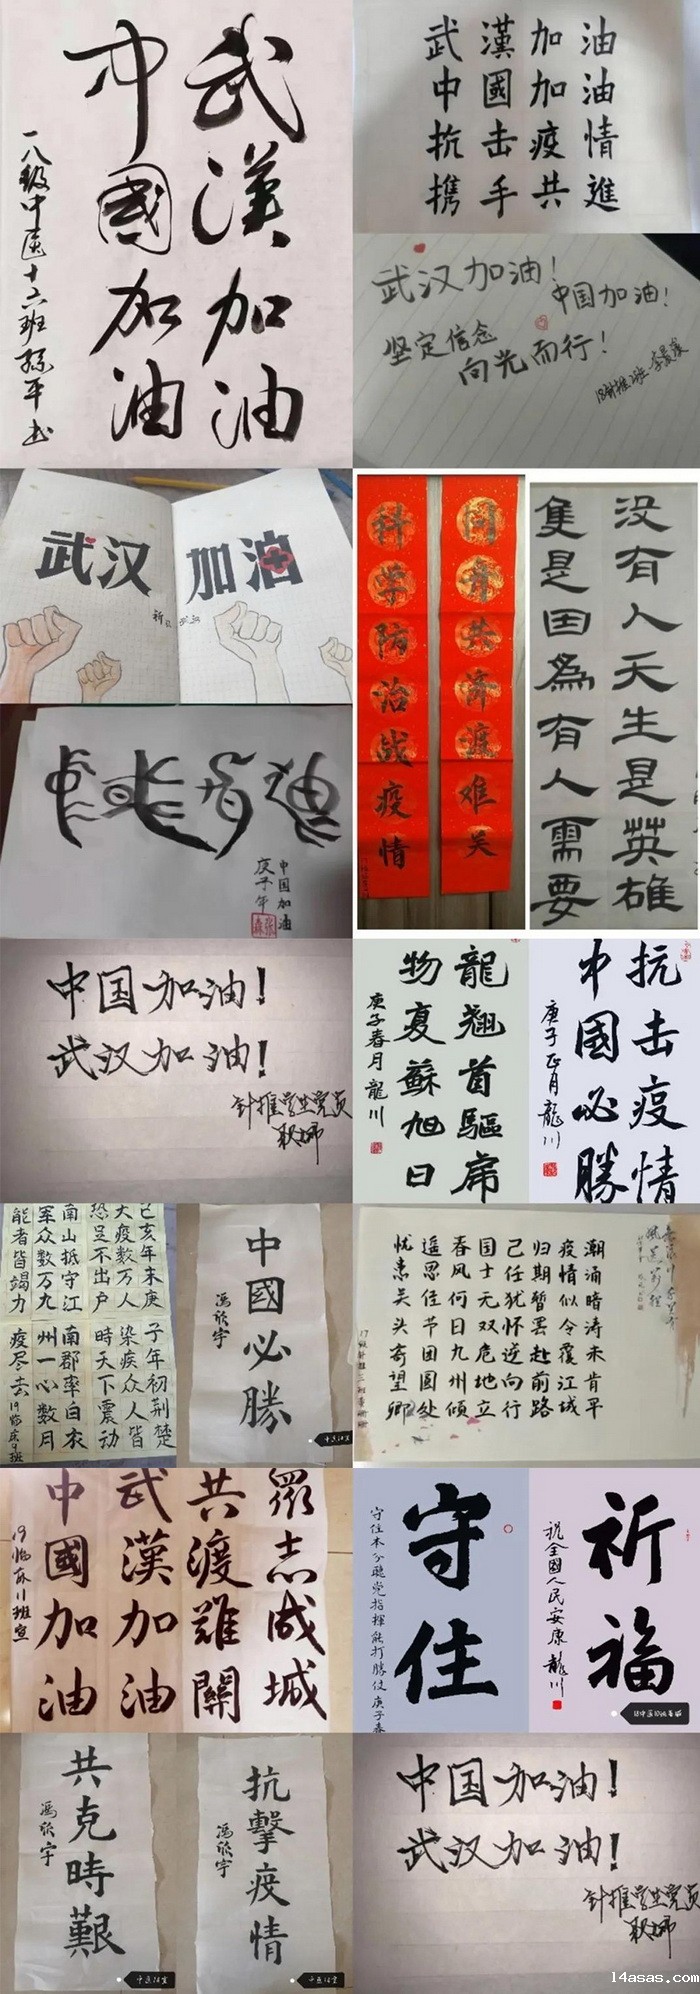 武漢加油
中國加油
一八级中医十六班孙平书
武漢加油
中國加油
抗击疫情
携手共進
武汉加油！
中国加油！
坚定信念
向光而行！
18针推2班
武汉
加油
祈
科学防治战疫情
同舟共济渡难关
没有人天生是英雄
隻是因為有人需要
中国加油
庚子年
中国加油！
武汉加油！
针推学生党员
龍翘首驅
物复蘇旭日
庚子春月龍川
抗击疫情
中國必勝
庚子正月龍川
己亥年末庚
大疫数万人
恐足不出户
南山抵守江
军众数万九
能者皆竭力
子年初荆楚
染疾众人皆
时天下震动
南郡率白衣
州一心数月
疫尽去
19临床9班
中國必勝
馮欣宇
中医14宣
潮涌暗涛未肯平
疫情似令覆江城
归期暂罢赴前路
己任犹怀逆向行
国士无双危地立
春风何日九州倾
遥思佳节团圆处
忧患关头寄望卿
眾志成城
共渡難關
武漢加油
中國加油
19临床11班宣
守住
守住本分聽党指揮能打勝仗庚子春
祈福
祝全國人民安康龍川
共克時艱
馮欣宇
中医14宣
抗擊疫情
馮欣宇
中医14宣
中国加油！
武汉加油！
针推学生党员
14asas.com